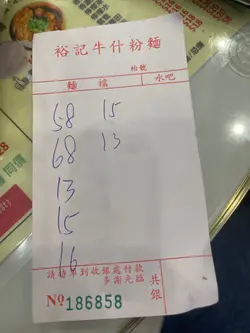 裕記牛什粉麵
枱號
麵檔 水吧
58 15
68 13
13
15
16
請持單到收銀處付款
多謝光臨
共銀
№186858